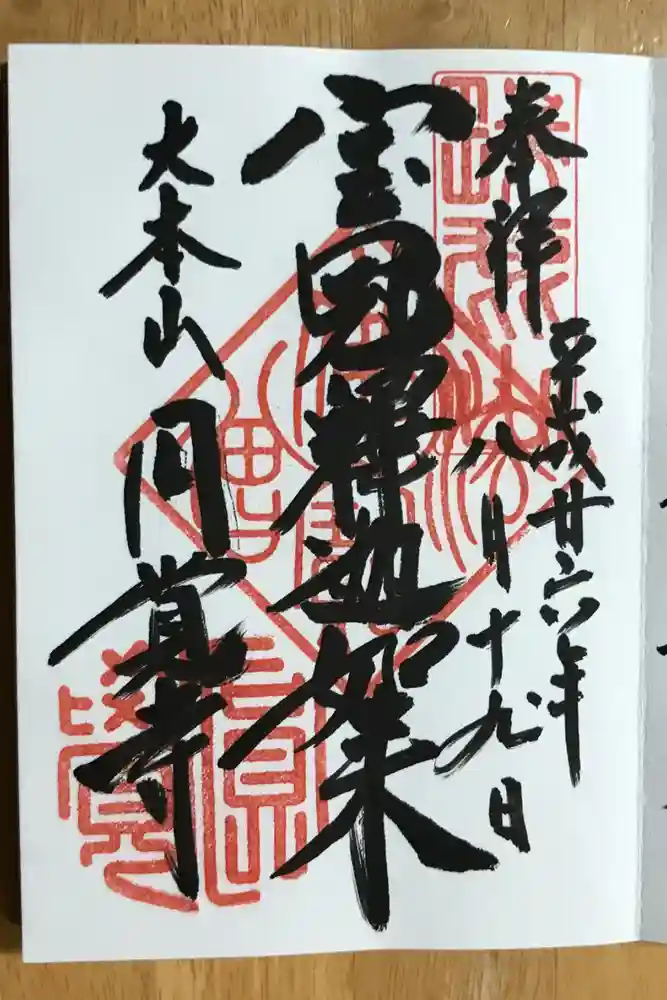 奉拝
平成廿六年
八月十九日
宝冠釋迦架
大本山
円覚寺